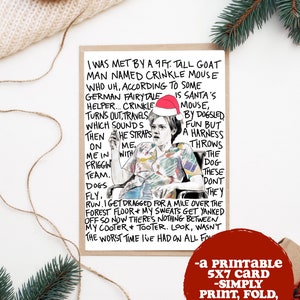 I WAS MET BY A 9FT. TALL GOAT
MAN NAMED CRINKLE MOUSE
WHO UH, ACCORDING TO SOME
GERMAN FAIRYTALE IS SANTA'S
HELPER... CRINKLE MOUSE,
TURNS OUT, TRAVELS BY DOGSLED
WHICH SOUNDS FUN BUT
THEN HE STRAPS A HARNESS
ON ME THROWS
ME IN WITH THE
FRIGGN DOG
TEAM. THESE
DOGS DON'T
FLY, THEY
RUN. I GET DRAGGED FOR A MILE OVER THE
FOREST FLOOR & MY SWEATS GET YANKED
OFF SO NOW THERE'S NOTHING BETWEEN
MY COOTER & TOOTER. LOOK, WASN'T
THE WORST TIME I'VE HAD ON ALL
-A PRINTABLE
5X7 CARD
-SIMPLY
PRINT, FOLD,